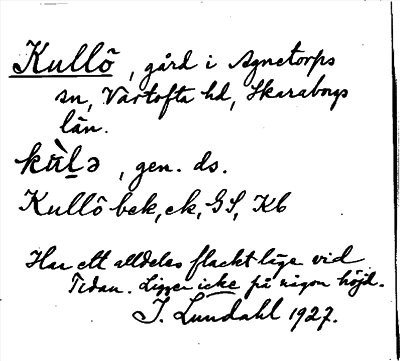 Kullö, gård i Agnetorps
sn, Vartofta hd, Skaraborgs
län.
kùḷə, gen. ds.
Kullö bek, ek, GS, Kb
Har ett alldeles flackt läge vid
Tidan. Ligger icke på någon höjd.
I. Lundahl 1927.